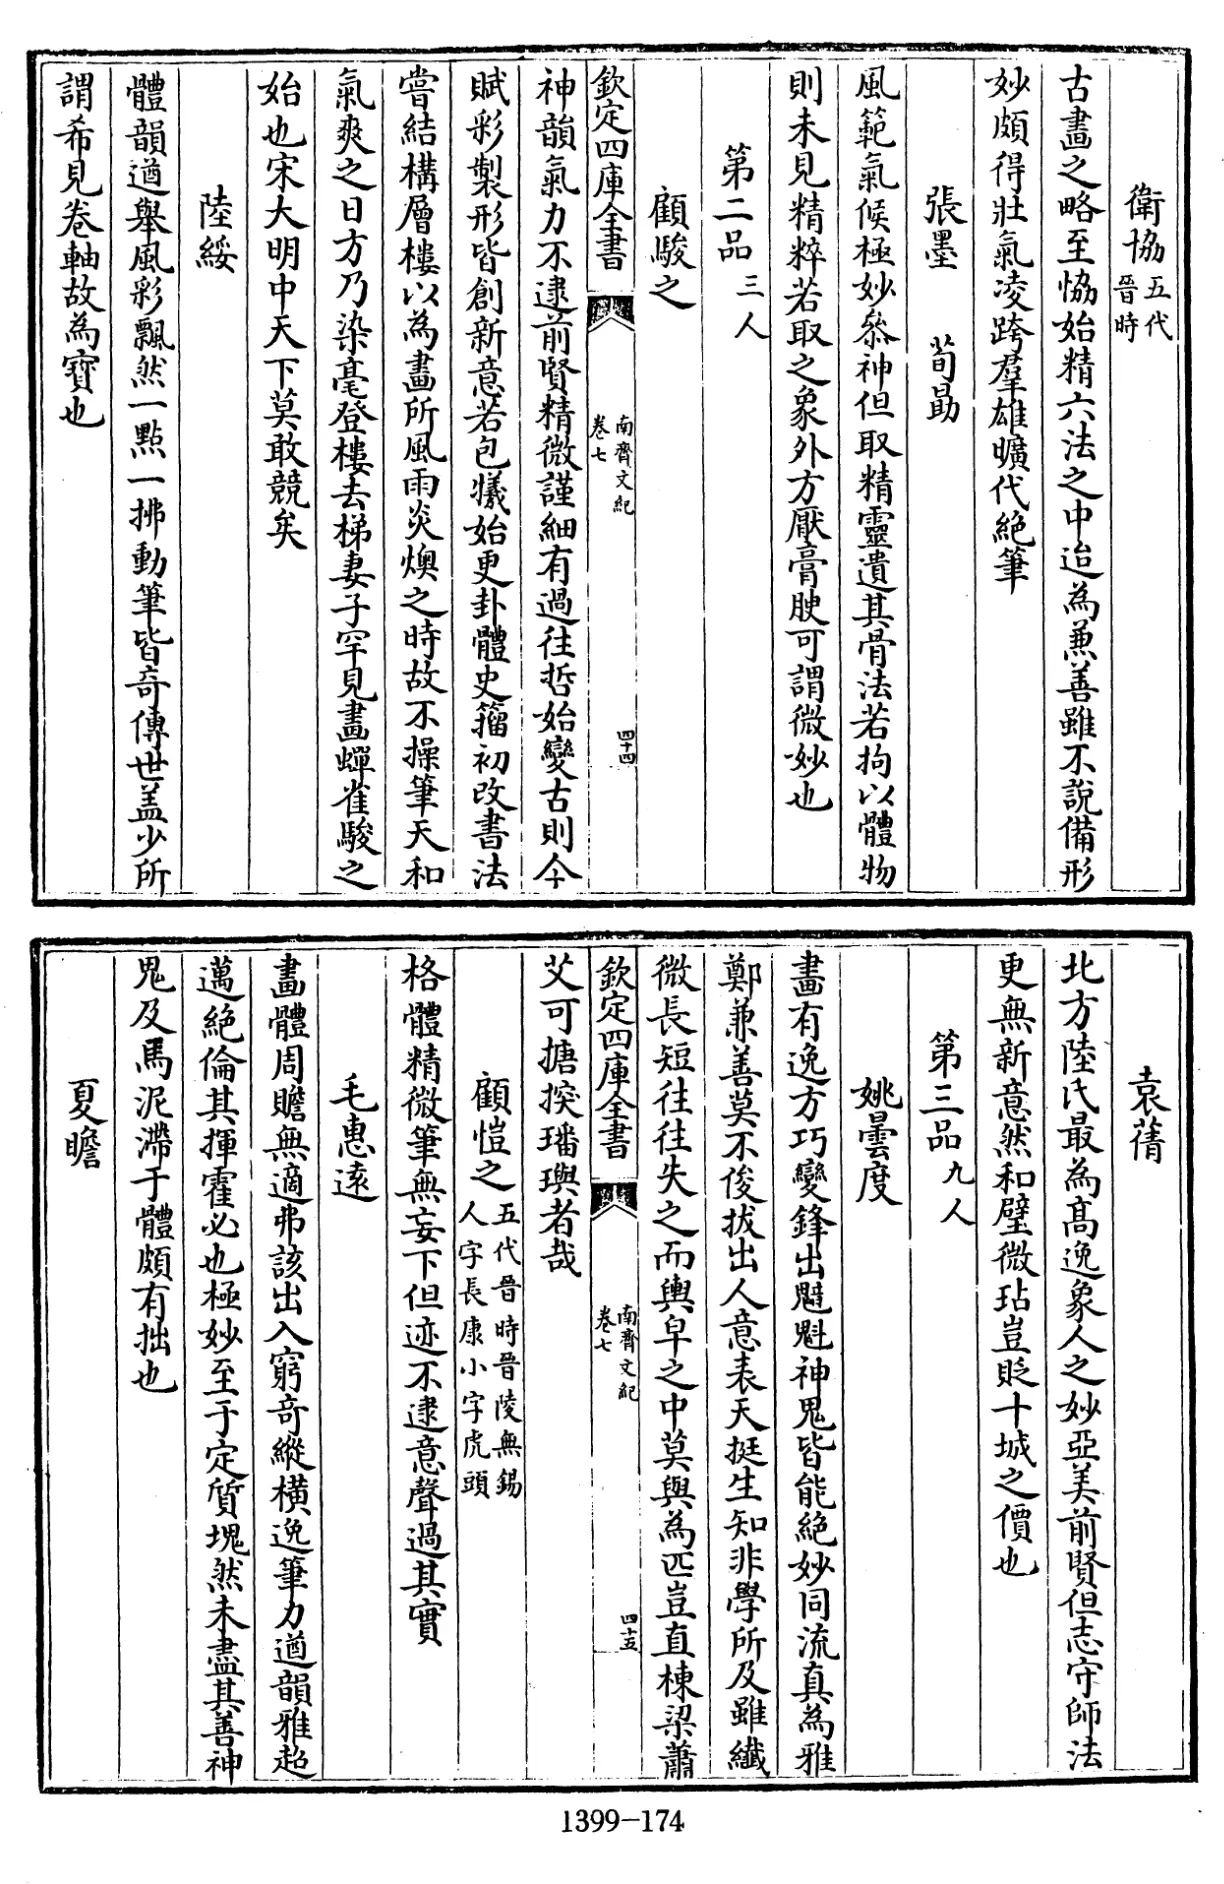 衛協五代晉時
古畫之略至恊始精六法之中迨為兼善雖不說備形
妙頗得壯氣凌跨羣雄曠代絶筆
張墨　荀勗
風範氣候極妙叅神但取精靈遺其骨法若拘以體物
則未見精粹若取之象外方厭膏腴可謂微妙也
第二品三人
顧駿之
欽定四庫全書　南齊文紀卷七　四十四
神韻氣力不逮前賢精微謹細有過往哲始變古則今
賦彩製形皆創新意若包犧始更卦體史籀初改書法
嘗結構層樓以為畫所風雨炎燠之時故不操筆天和
氣爽之日方乃染毫登樓去梯妻子罕見畫蟬雀駿之
始也宋大明中天下莫敢競矣
陸綏
體韻遒舉風彩飄然一點一拂動筆皆奇傳世盖少所
謂希見卷軸故為寳也
袁蒨
北方陸氏最為髙逸象人之妙亞美前賢但志守師法
更無新意然和璧微玷豈貶十城之價也
第三品九人
姚曇度
畫有逸方巧變鋒出魑魁神鬼皆能絶妙同流真為雅
鄭兼善莫不俊拔出人意表天挺生知非學所及雖纎
微長短往往失之而輿皁之中莫與為匹豈直棟梁蕭
欽定四庫全書　南齊文紀卷七　四十五
艾可搪揬璠璵者哉
顧愷之五代晉時晉陵無錫人字長康小字虎頭
格體精微筆無妄下但迹不逮意聲過其實
毛惠逺
畫體周贍無適弗該出入窮奇縱横逸筆力遒韻雅超
邁絶倫其揮霍必也極妙至于定質塊然未盡其善神
鬼及馬泥滯于體頗有拙也
夏瞻
1399-174